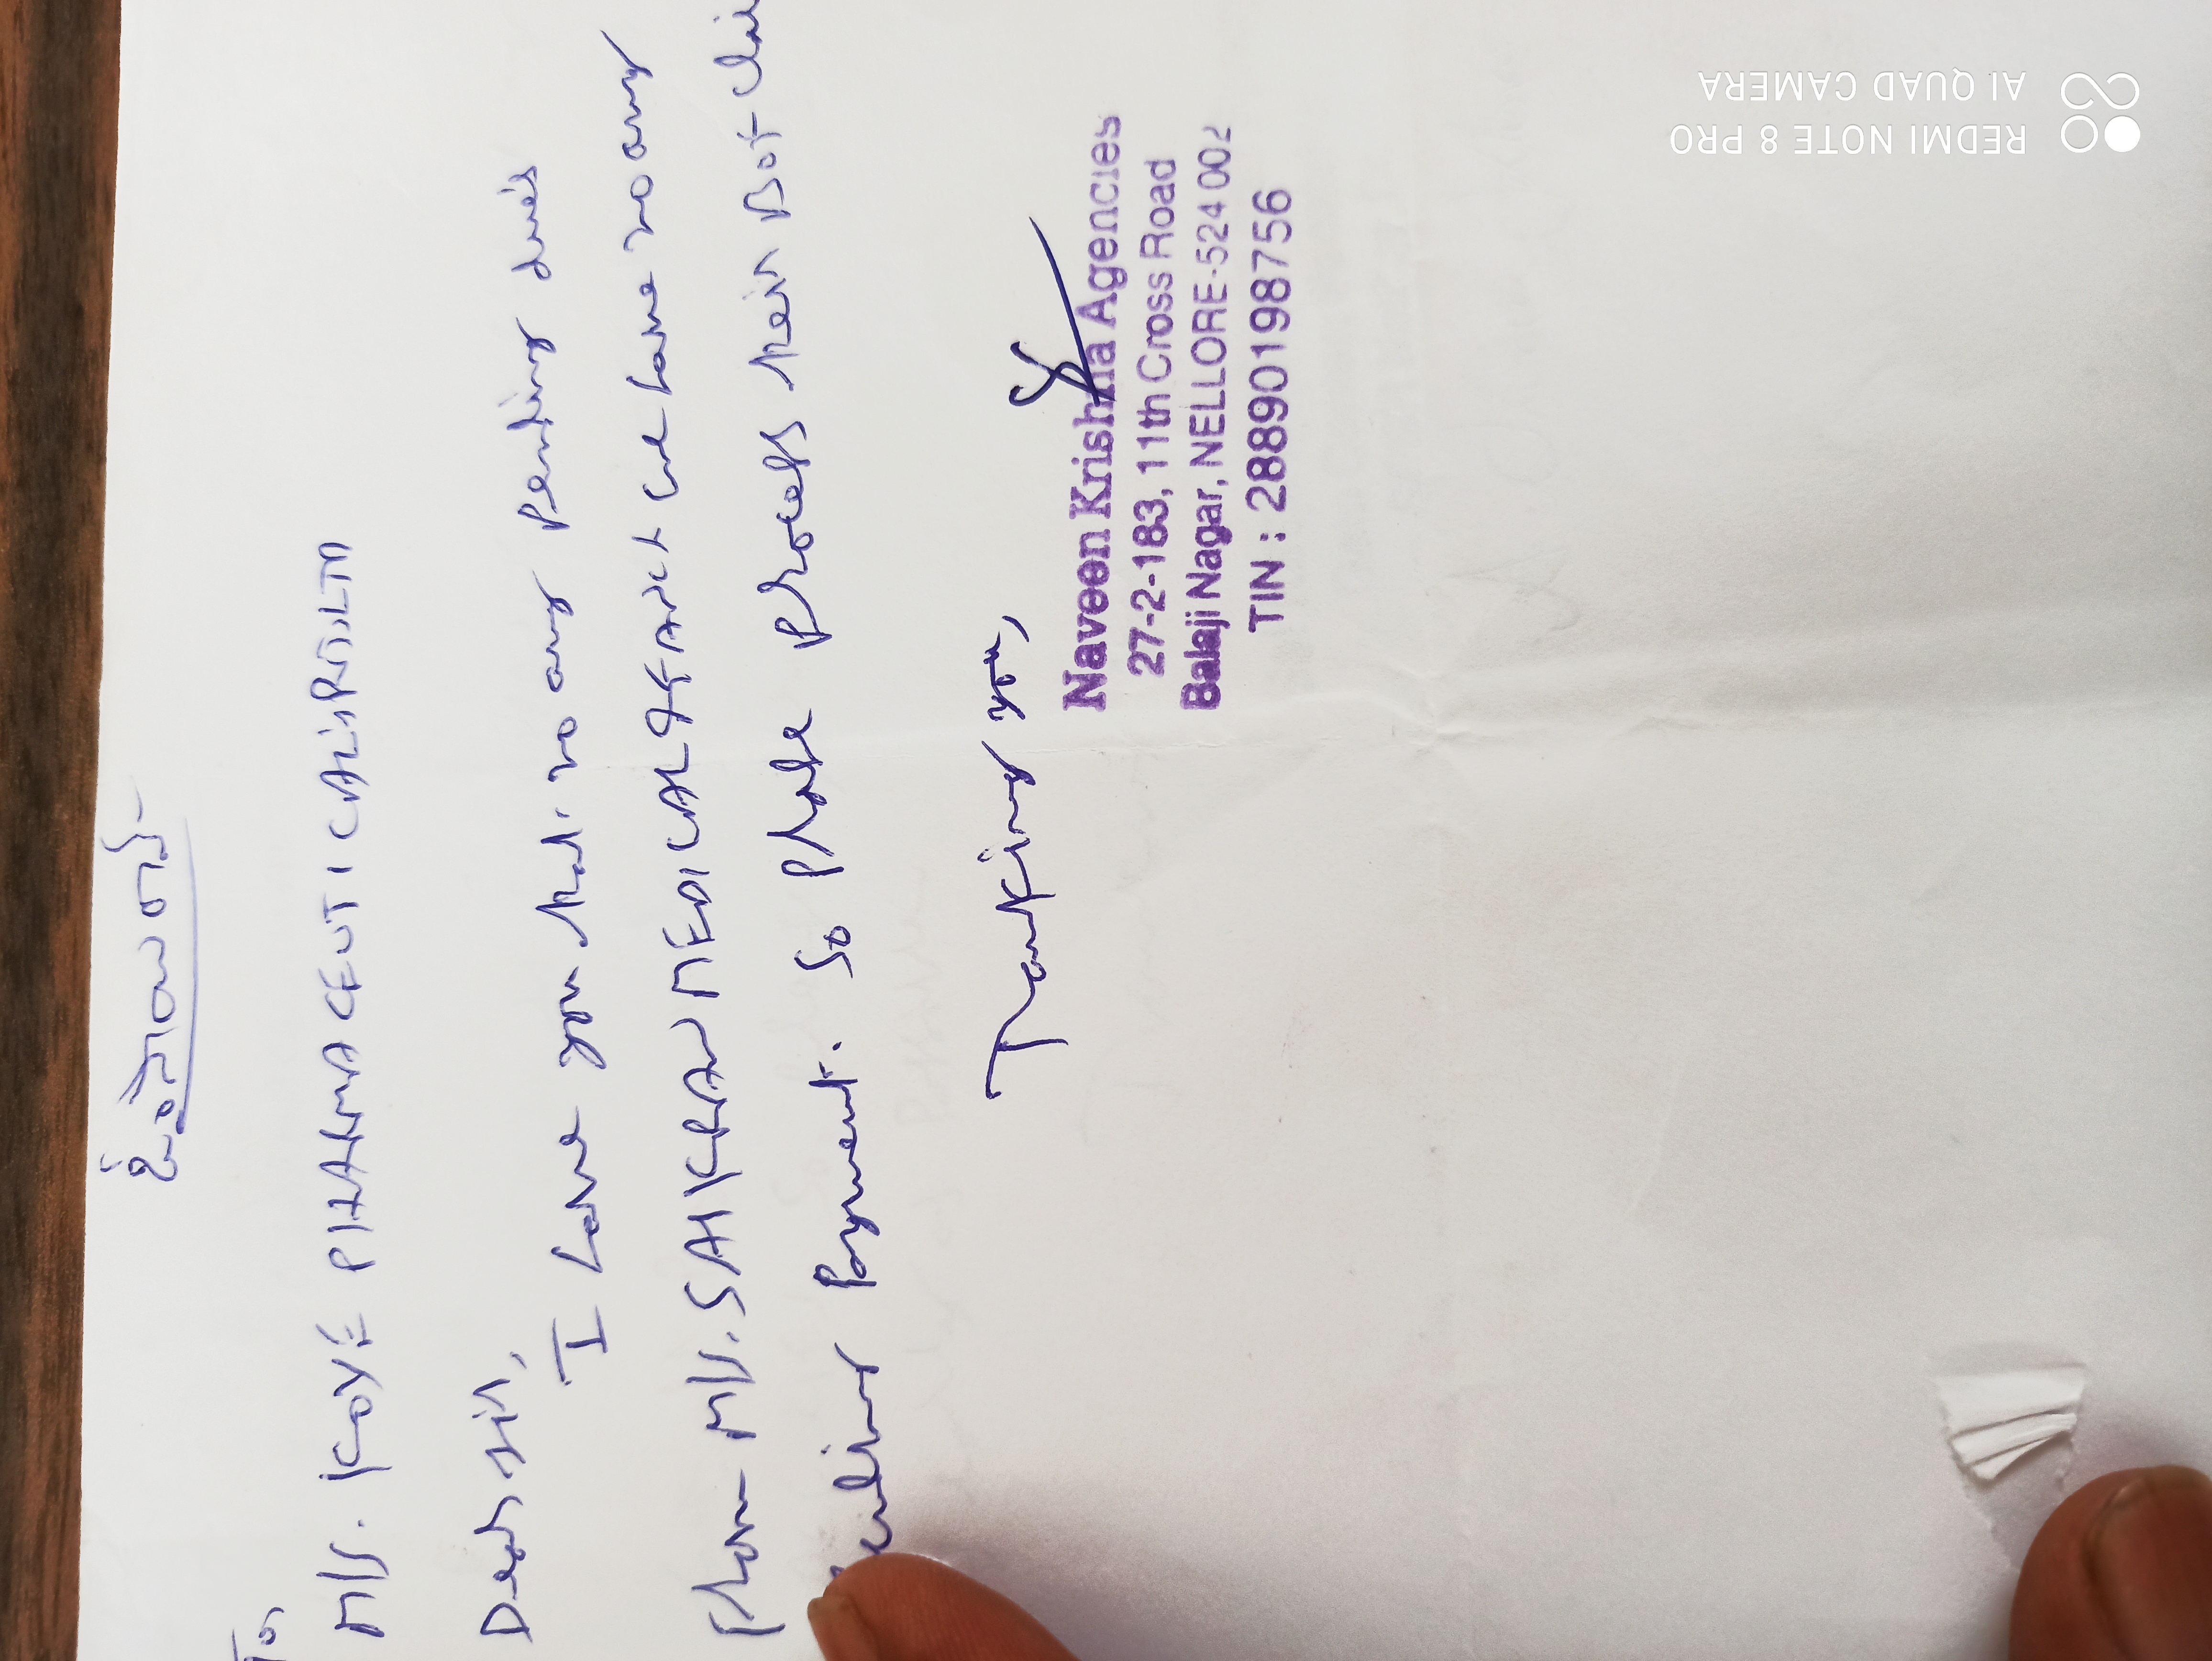 To,
M/s. KAYE PHARMACEUTICALS PVT. LTD
Dear sir,
I have your no any pending dues
from M/s. SAI KIRAN MEDICAL & FANCY we have no any
pending payment. So please process their not
Thanking you,
Naveen Krishna Agencies
27-2-183, 11th Cross Road
Balaji Nagar, NELLORE-524 002
TIN : 28890198756
REDMI NOTE 8 PRO
AI QUAD CAMERA